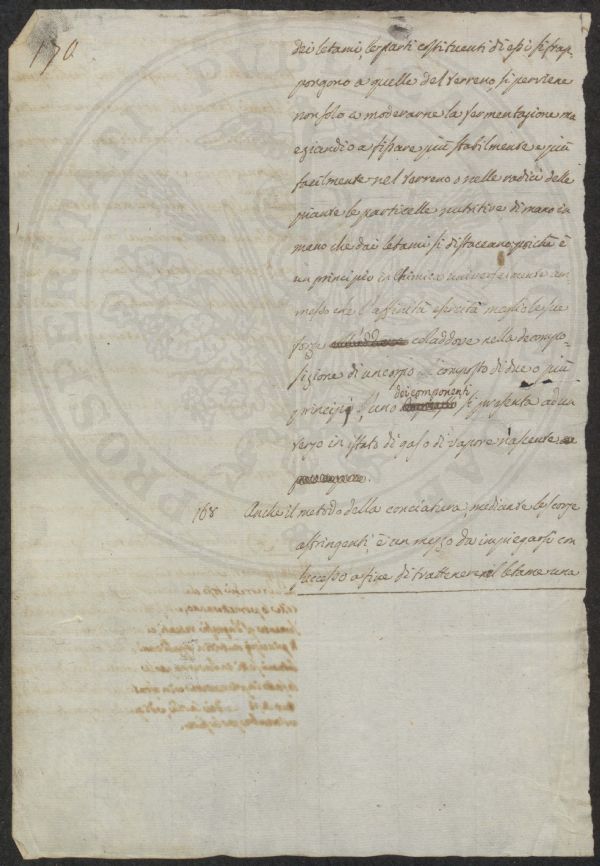 170.
dei letami, le parti costituenti di essi si frap-
pongono a quelle del terreno, si perviene
non solo a moderarne la fermentazione ma
eziandio a fissare più stabilmente e più
facilmente nel terreno o nelle radici delle
piante le particelle nutritive di mano in
mano che dai letami si distaccano, poichè è
un principio in Chimica universalmente am-
messo che l'affinità esercita meglio le sue
forze coladdove nella decompo-
sizione di un corpo composto di due o più
dei componenti
principj l'uno si presenta ad un
terzo in istato di gas o di vapore nascente
168 Anche il metodo della conciatura, mediante le scorze
astringenti, è un mezzo da impiegarsi con
successo a fine di trattenere nel letame una